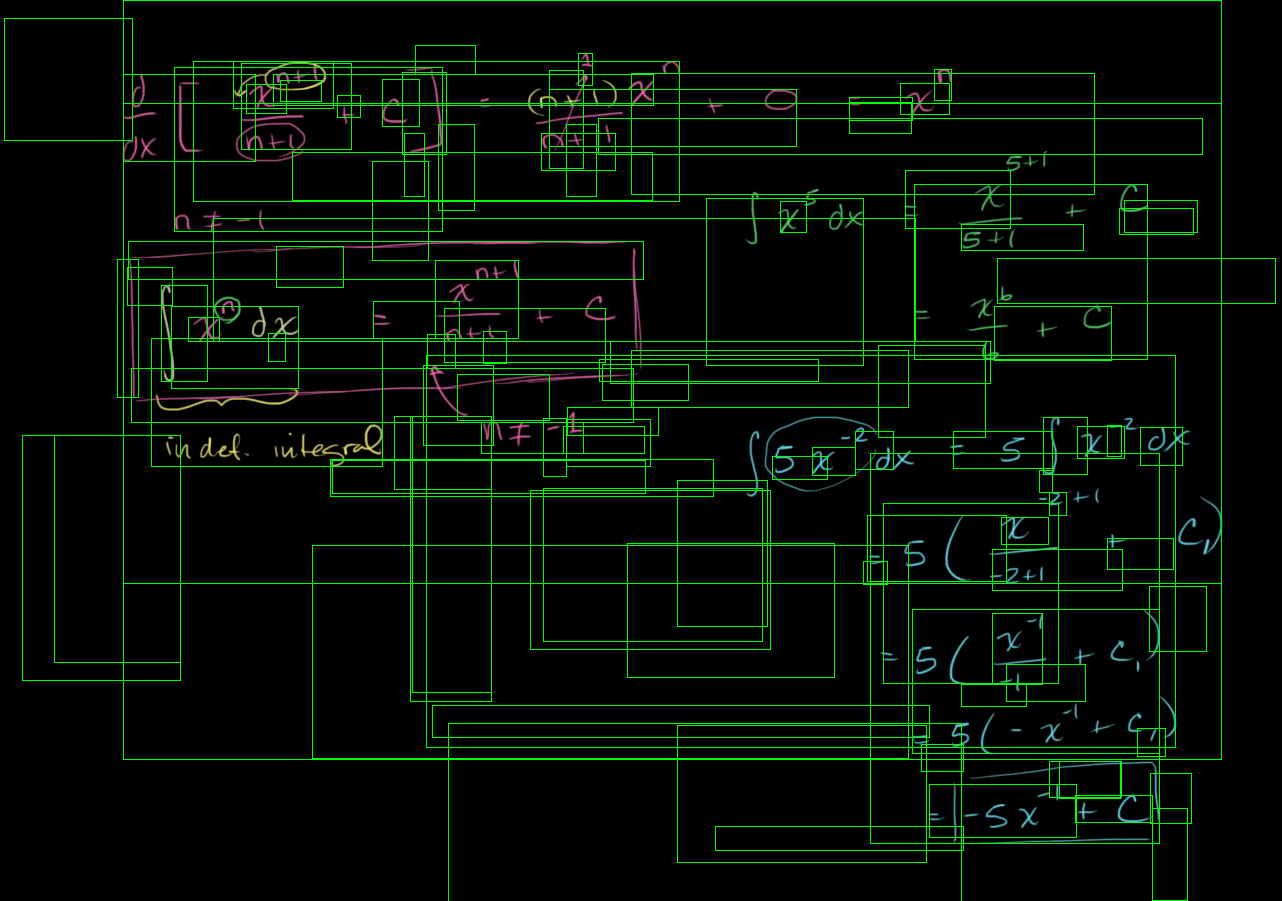 d/dx [ x^(n+1)/(n+1) + C ] = (n+1) x^n/(n+1) + 0 = x^n
1
n ≠ -1
∫ x^n dx = x^(n+1)/(n+1) + C
n ≠ -1
indef. integral
∫ x^5 dx = x^(5+1)/(5+1) + C
= x^6/6 + C
∫ 5x^-2 dx = 5 ∫ x^2 dx
= 5 ( x^(-2+1)/(-2+1) + C₁ )
= 5 ( x^-1/-1 + C₁ )
= 5 ( - x^-1 + C₁ )
= -5x^-1 + C